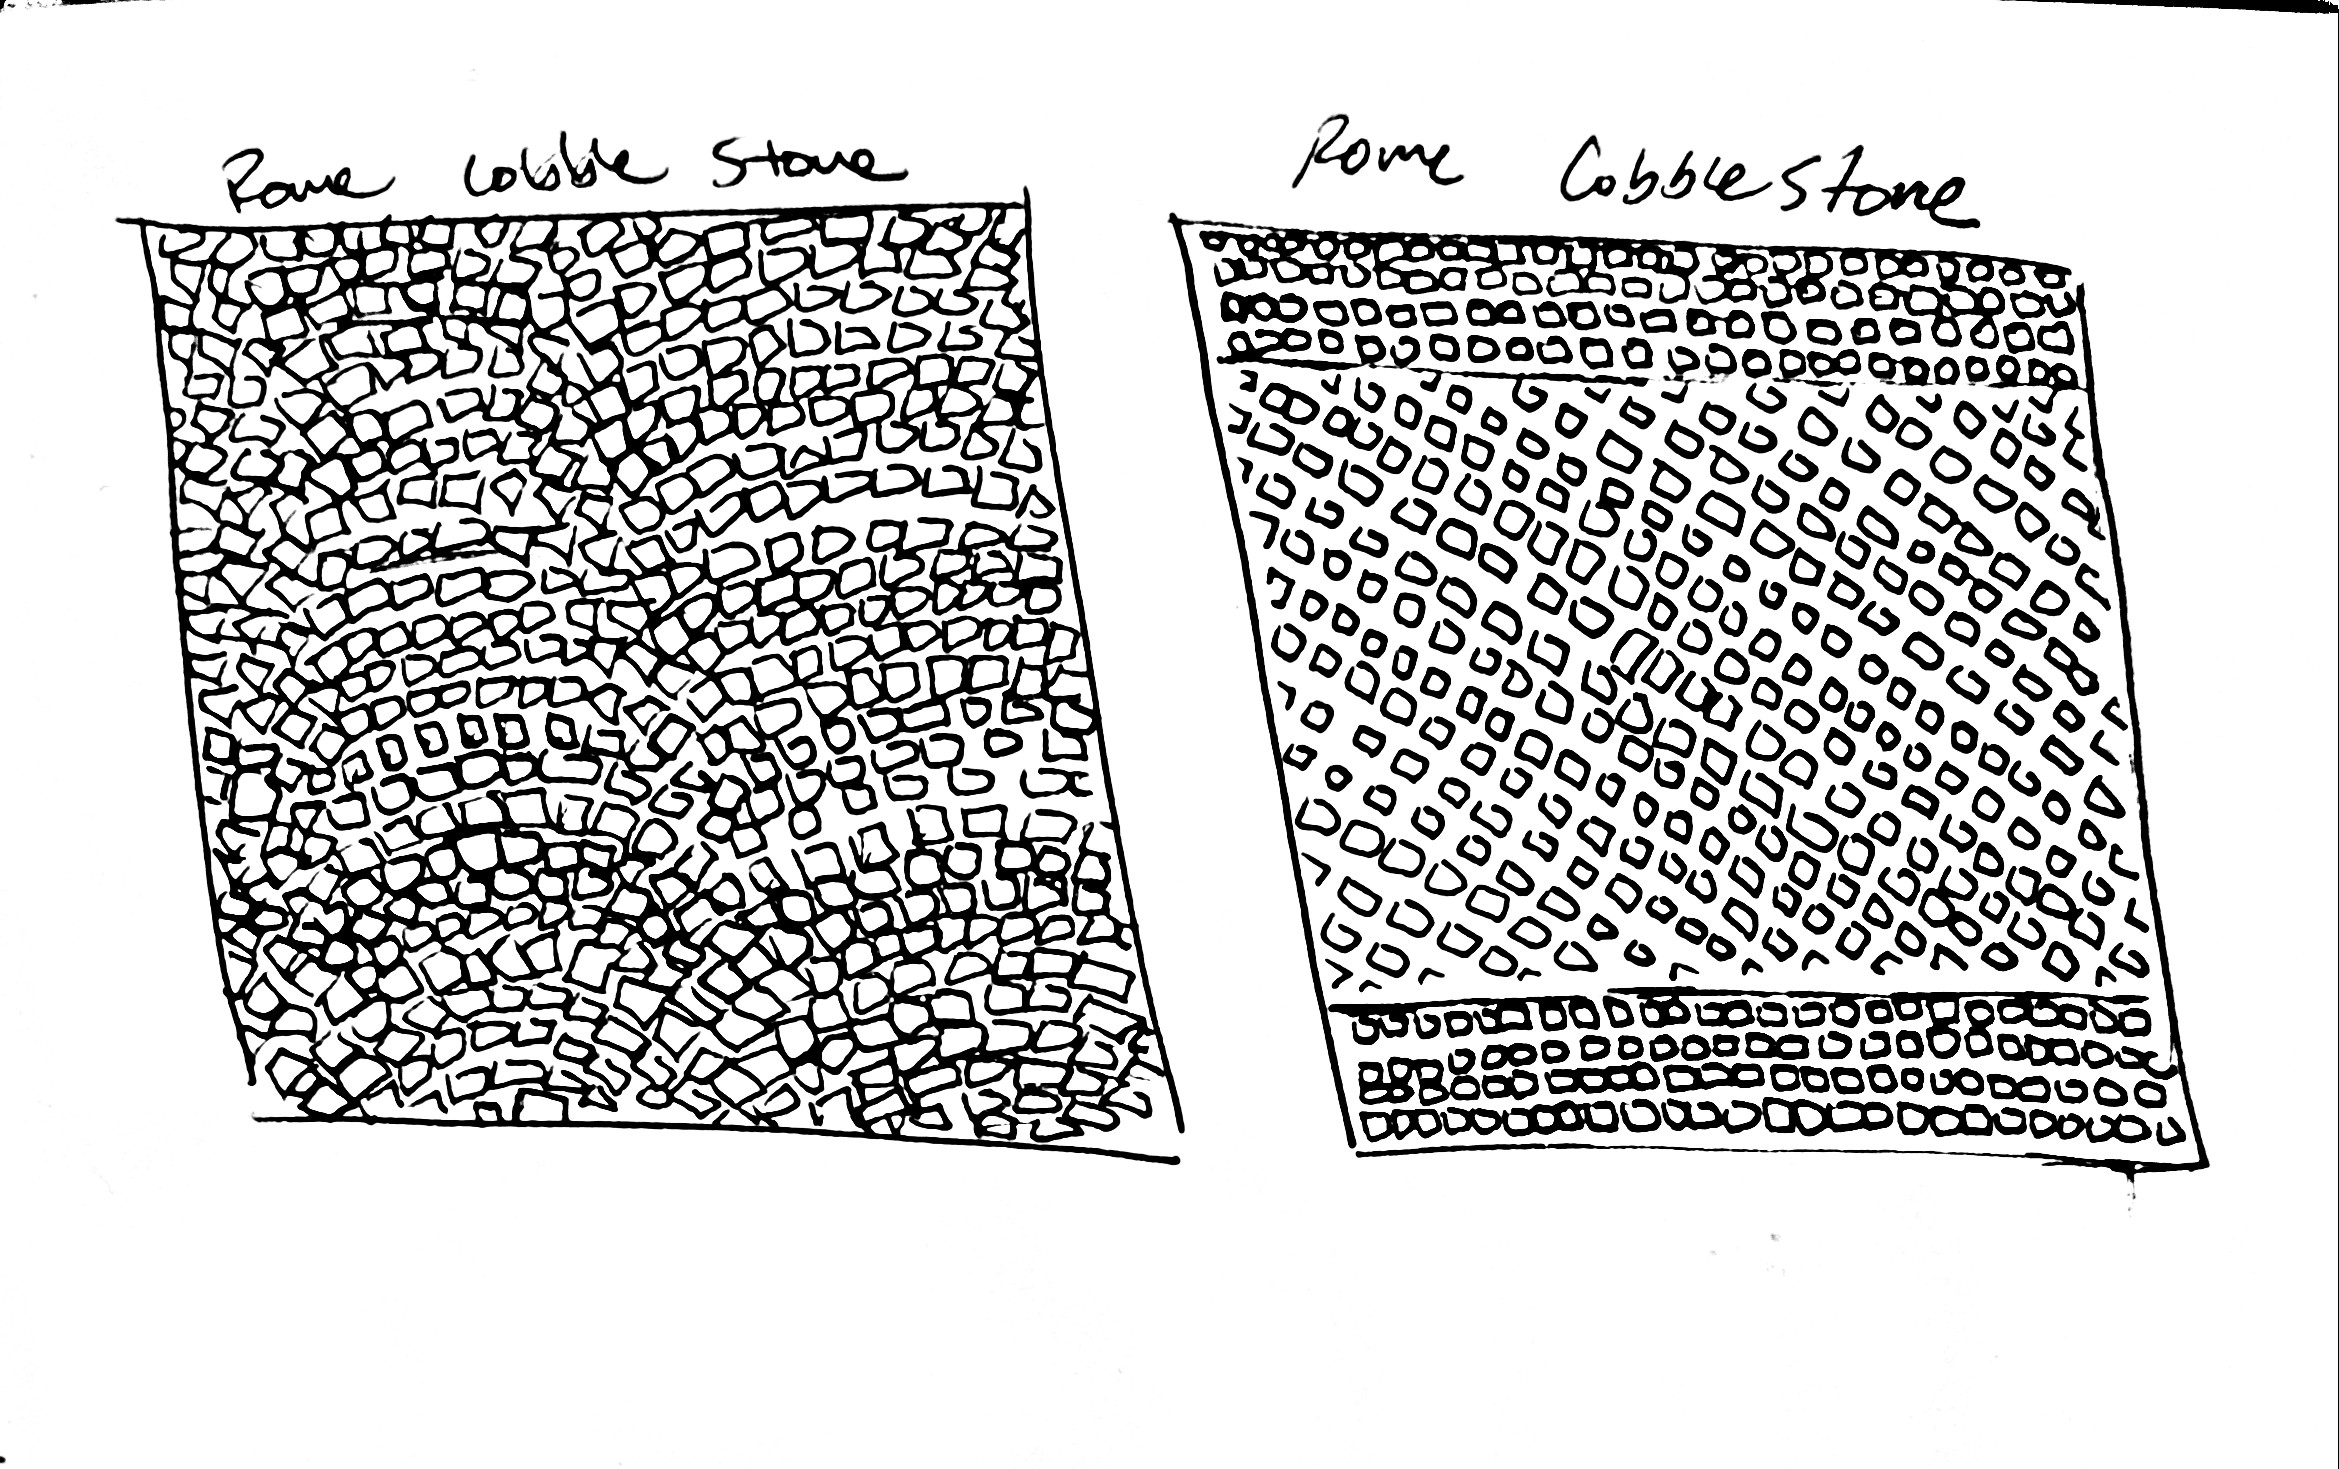 Rome Cobble Stone
Rome Cobble Stone